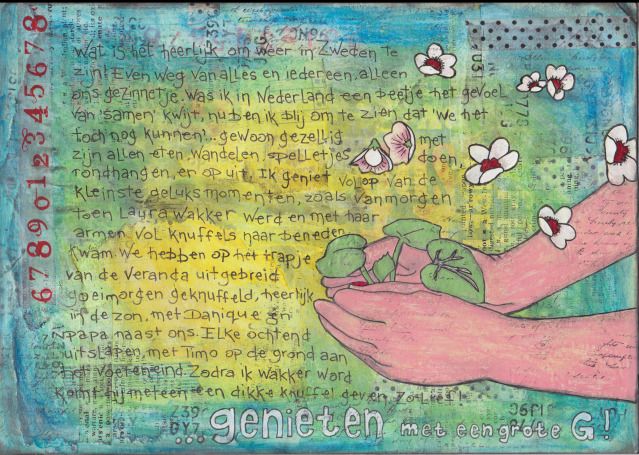 Wat is het heerlijk om weer in Zweden te
zijn! Even weg van alles en iedereen. alleen
ons gezinnetje. Was ik in Nederland een beetje het gevoel
van 'samen' kwijt, nu ben ik blij om te zien dat 'we het
toch nog kunnen'... gewoon gezellig met
zijn allen eten, wandelen, spelletjes doen,
rondhangen, er op uit. Ik geniet volop van de
kleinste geluksmomenten, zoals vanmorgen
toen Laura wakker werd en met haar
armen vol knuffels naar beneden
kwam. We hebben op het trapje
van de veranda uitgebreid
goeimorgen geknuffeld, heerlijk
in de zon, met Danique en
papa naast ons. Elke ochtend
uitslapen, met Timo op de grond aan
het voeteneind. Zodra ik wakker word
komt hij meteen een dikke knuffel geven. Zo lief!
...genieten met een grote G!
6 7 8 9 0 1 2 3 4 5 6 7 8